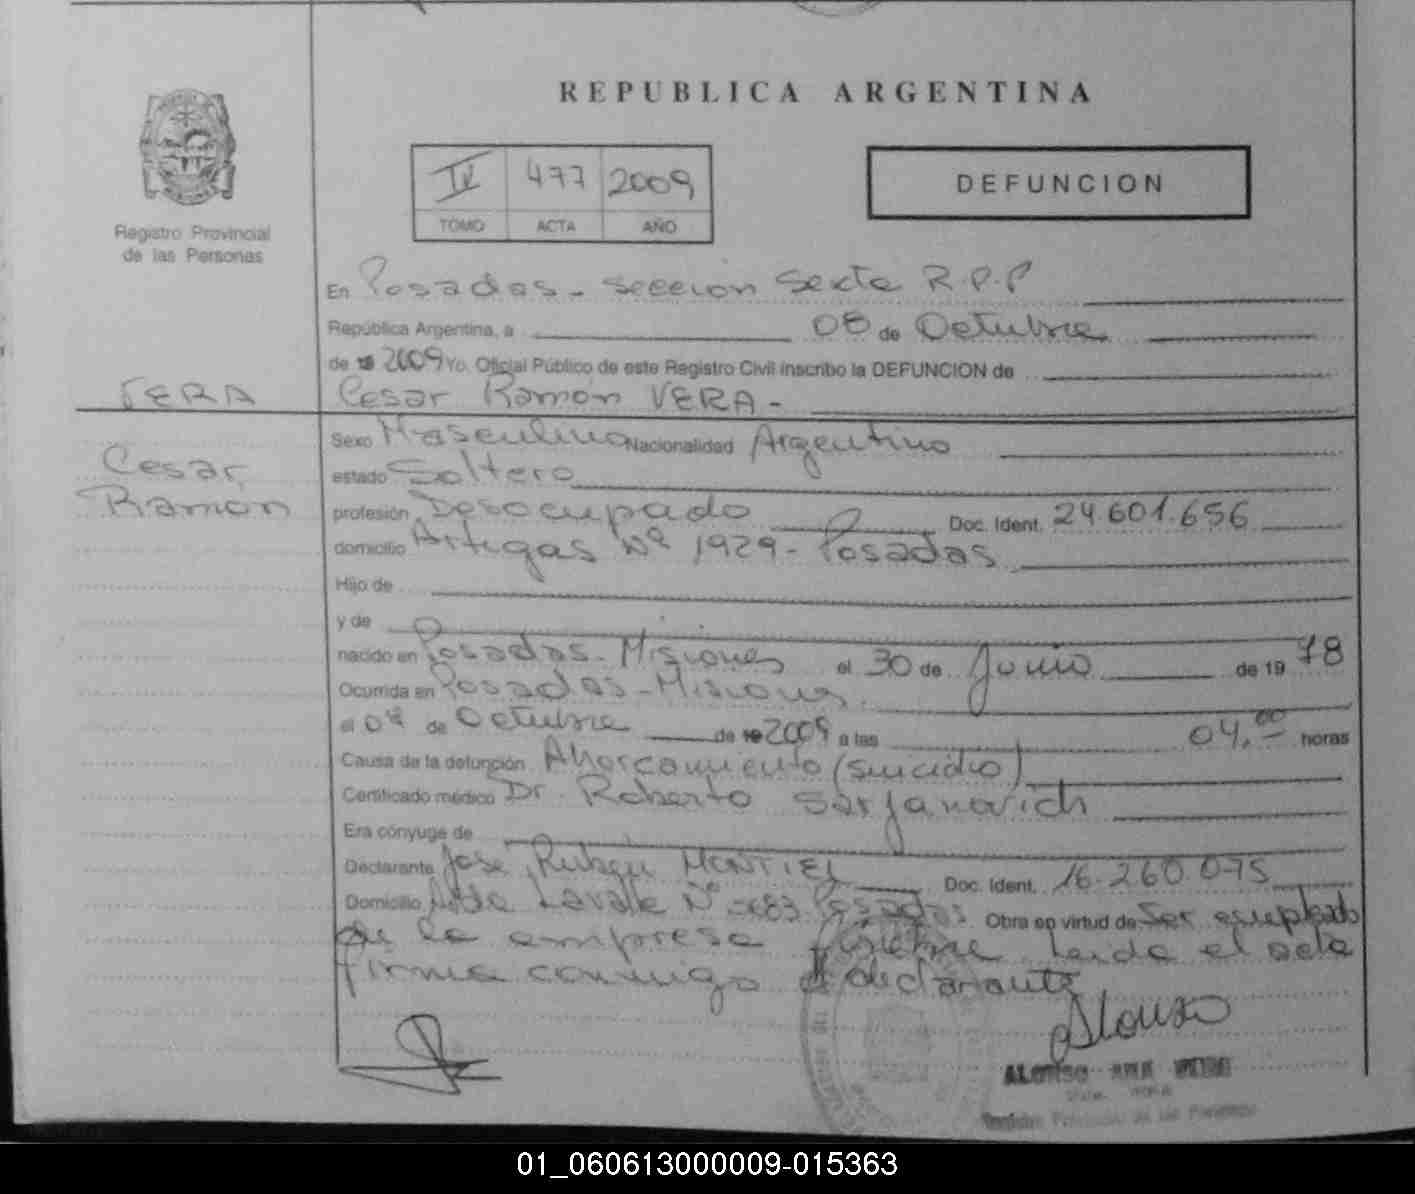 REPUBLICA ARGENTINA
IV 477 2009
TOMO ACTA AÑO
DEFUNCION
Registro Provincial
de las Personas
En Posadas - Seccion Sexta R.P.P
República Argentina, a 08 de Octubre
de 19 2009 Yo, Oficial Público de este Registro Civil inscribo la DEFUNCION de
VERA
Cesar Ramón VERA -
Cesar
Ramón
Sexo Masculino Nacionalidad Argentino
estado Soltero
profesión Desocupado Doc. Ident. 24.601.656
domicilio Artigas Nº 1929 - Posadas
Hijo de
y de
nacido en Posadas - Misiones el 30 de Junio de 19 78
Ocurrida en Posadas - Misiones
el 08 de Octubre de 19 2009 a las 04,00 horas
Causa de la defunción Ahorcamiento (suicidio)
Certificado médico Dr. Roberto Serjanovich
Era cónyuge de
Declarante Jose Ruben MONTIEL Doc. Ident. 16.260.075
Domicilio Avda Lavalle Nº Posadas Obra en virtud de Ser empleado
de la empresa funebre Leida el acta
firma conmigo el declarante
Alonso
ALONSO
Registro Provincial de las Personas
01_060613000009-015363